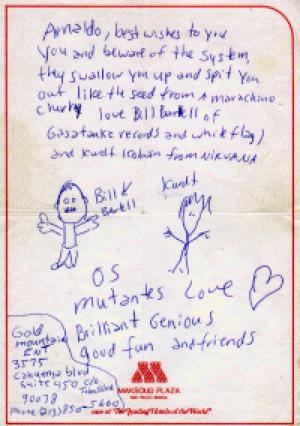 Arnaldo, best wishes to you
you and beware of the system,
they swallow you up and spit you
out like the seed from A marachino
cherry love Bill Bartell of
Gasatanka records and white flag)
and Kurdt Kobain from NIRVANA
Bill
Bartell
Kurdt
OS
mutantes Love
Brilliant Genious
good fun and friends
Gold
mountain
ENT
3575
Cahuenga blvd
suite 450 c/o
90078
Phone (213) 850-5660
MAKSOUD PLAZA
SÃO PAULO, BRASIL
one of "The Leading Hotels of the World"